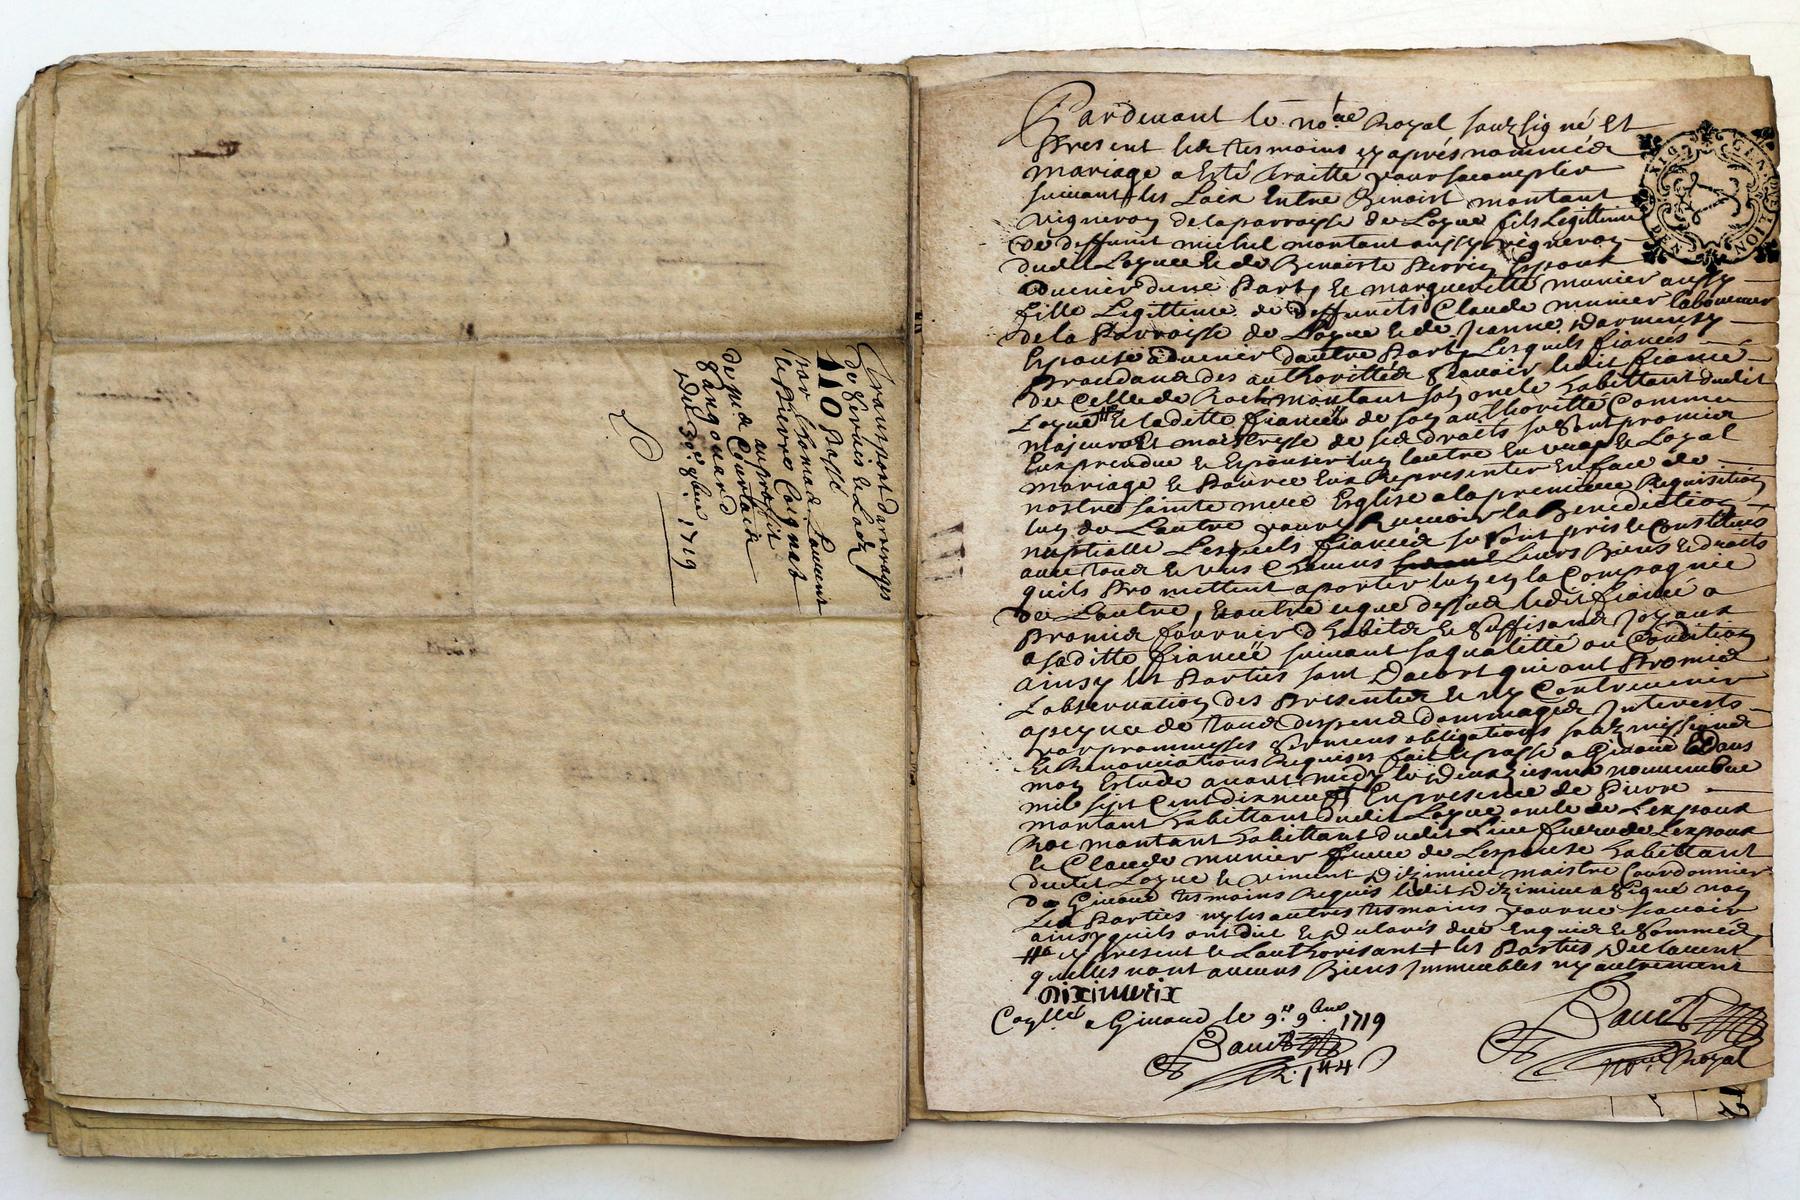 Transport darrerages
de servis & Lods
110 passé
par thomas Laurent
& pierre Coignat
au proffit
de mr de Courtaix
Gangouard
Du 30e 8bre 1719
Pardevant le nore Royal soubsigné Et
Present les tesmoins cy aprés nommés
mariage a Esté traitté pour saccomplir
suivant les Loix Entre Benoist montant
vigneron de la parroisse de Logne fils Legittime
de deffunt michel montant aussy vigneron
dudit Logne & de Benoiste Perrin Espoux
aduenir dune Part, & margueritte munier aussy
fille Legittime de deffuncts Claude munier laboureur
de la Parroisse de Logne & de Jeanne
Espouse aduenir dautre Part, Lesquels fiancés
Procedans des authorittés Scavoir ledit fiancé
de Celle de Roch montant son oncle habittant dudit
Logne # & laditte fiancée de son authoritté Comme
majeure Et maistresse de ses droits se sont promis
Eux prendre & Espouser lun lautre En vray & Loyal
mariage & Pource Eux Representer En face de
nostre sainte mere Eglise a la premiere Requisition
lun de Lautre pour y Recevoir la Benediction
nuptialle Lesquels fiancés se sont pris & Constitués
avec tous & uns Chacuns Leurs Biens & droits
quils Promettent aporter lun en la Compagnie
de Lautre, & outre ce que dessus ledit fiancé a
Promis fournir dhabits & suffisans Joyaux
a saditte fiancée suivant sa qualitté ou Condition
ainsy les Parties sont Dacort qui ont Promis
Lobservation des Presentes & ny Contrevenir
a peyne de tous despens dommages Interests
par prommesses sermens obligations soubmissions
& Renonciations Requises fait & passé a Givord & Dans
mon Estude avant midy le Deuxiesme nouvembre
mil sept Cent dixneuf En presence de Pierre
montant habittant dudit Logne oncle de Lespoux
Roc montant habittant dudit Lieu frere de Lespoux
& Claude munier frere de Lespouse habittant
dudit Logne & vincent Diximier maistre Cordonnier
de Givord tesmoins Requis ledit Diximier a signé non
Les Parties ny les autres tesmoins pour ne scavoir
ainsy quils ont dit & Declarés de ce Enquis & Sommés
# cy present & Lauthorisant + les Parties Declarent
quelles nont aucuns Biens Immeubles ny autrement
Diximieix
Conllé a Givord le 9e 9bre 1719
nore Royal